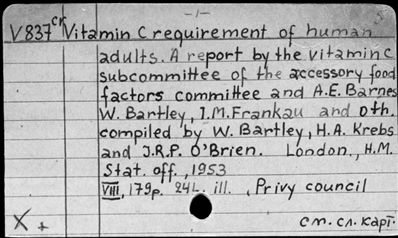 -1-
V837ск Vitamin C requirement of human
adults. A report by the vitamin C
subcommittee of the accessory food
factors committee and A.E. Barnes
W. Bartley, I.M. Frankau and oth.
compiled by W. Bartley, H.A. Krebs
and J.R.P. O'Brien. London., H.M.
Stat. off., 1953
VIII, 179p. 24L. ill. , Privy council
X +
см. сл. карт.